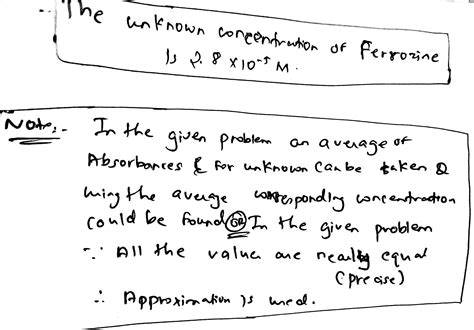 ∴ The unknown concentration of Ferrozine
is 2.8 x10⁻⁵ M.
Note:- In the given problem an average of
Absorbances & for unknown can be taken &
using the average corresponding concentration
could be found (OR) In the given problem
∵ All the value are nearly equal
(precise)
∴ Approximation is used.